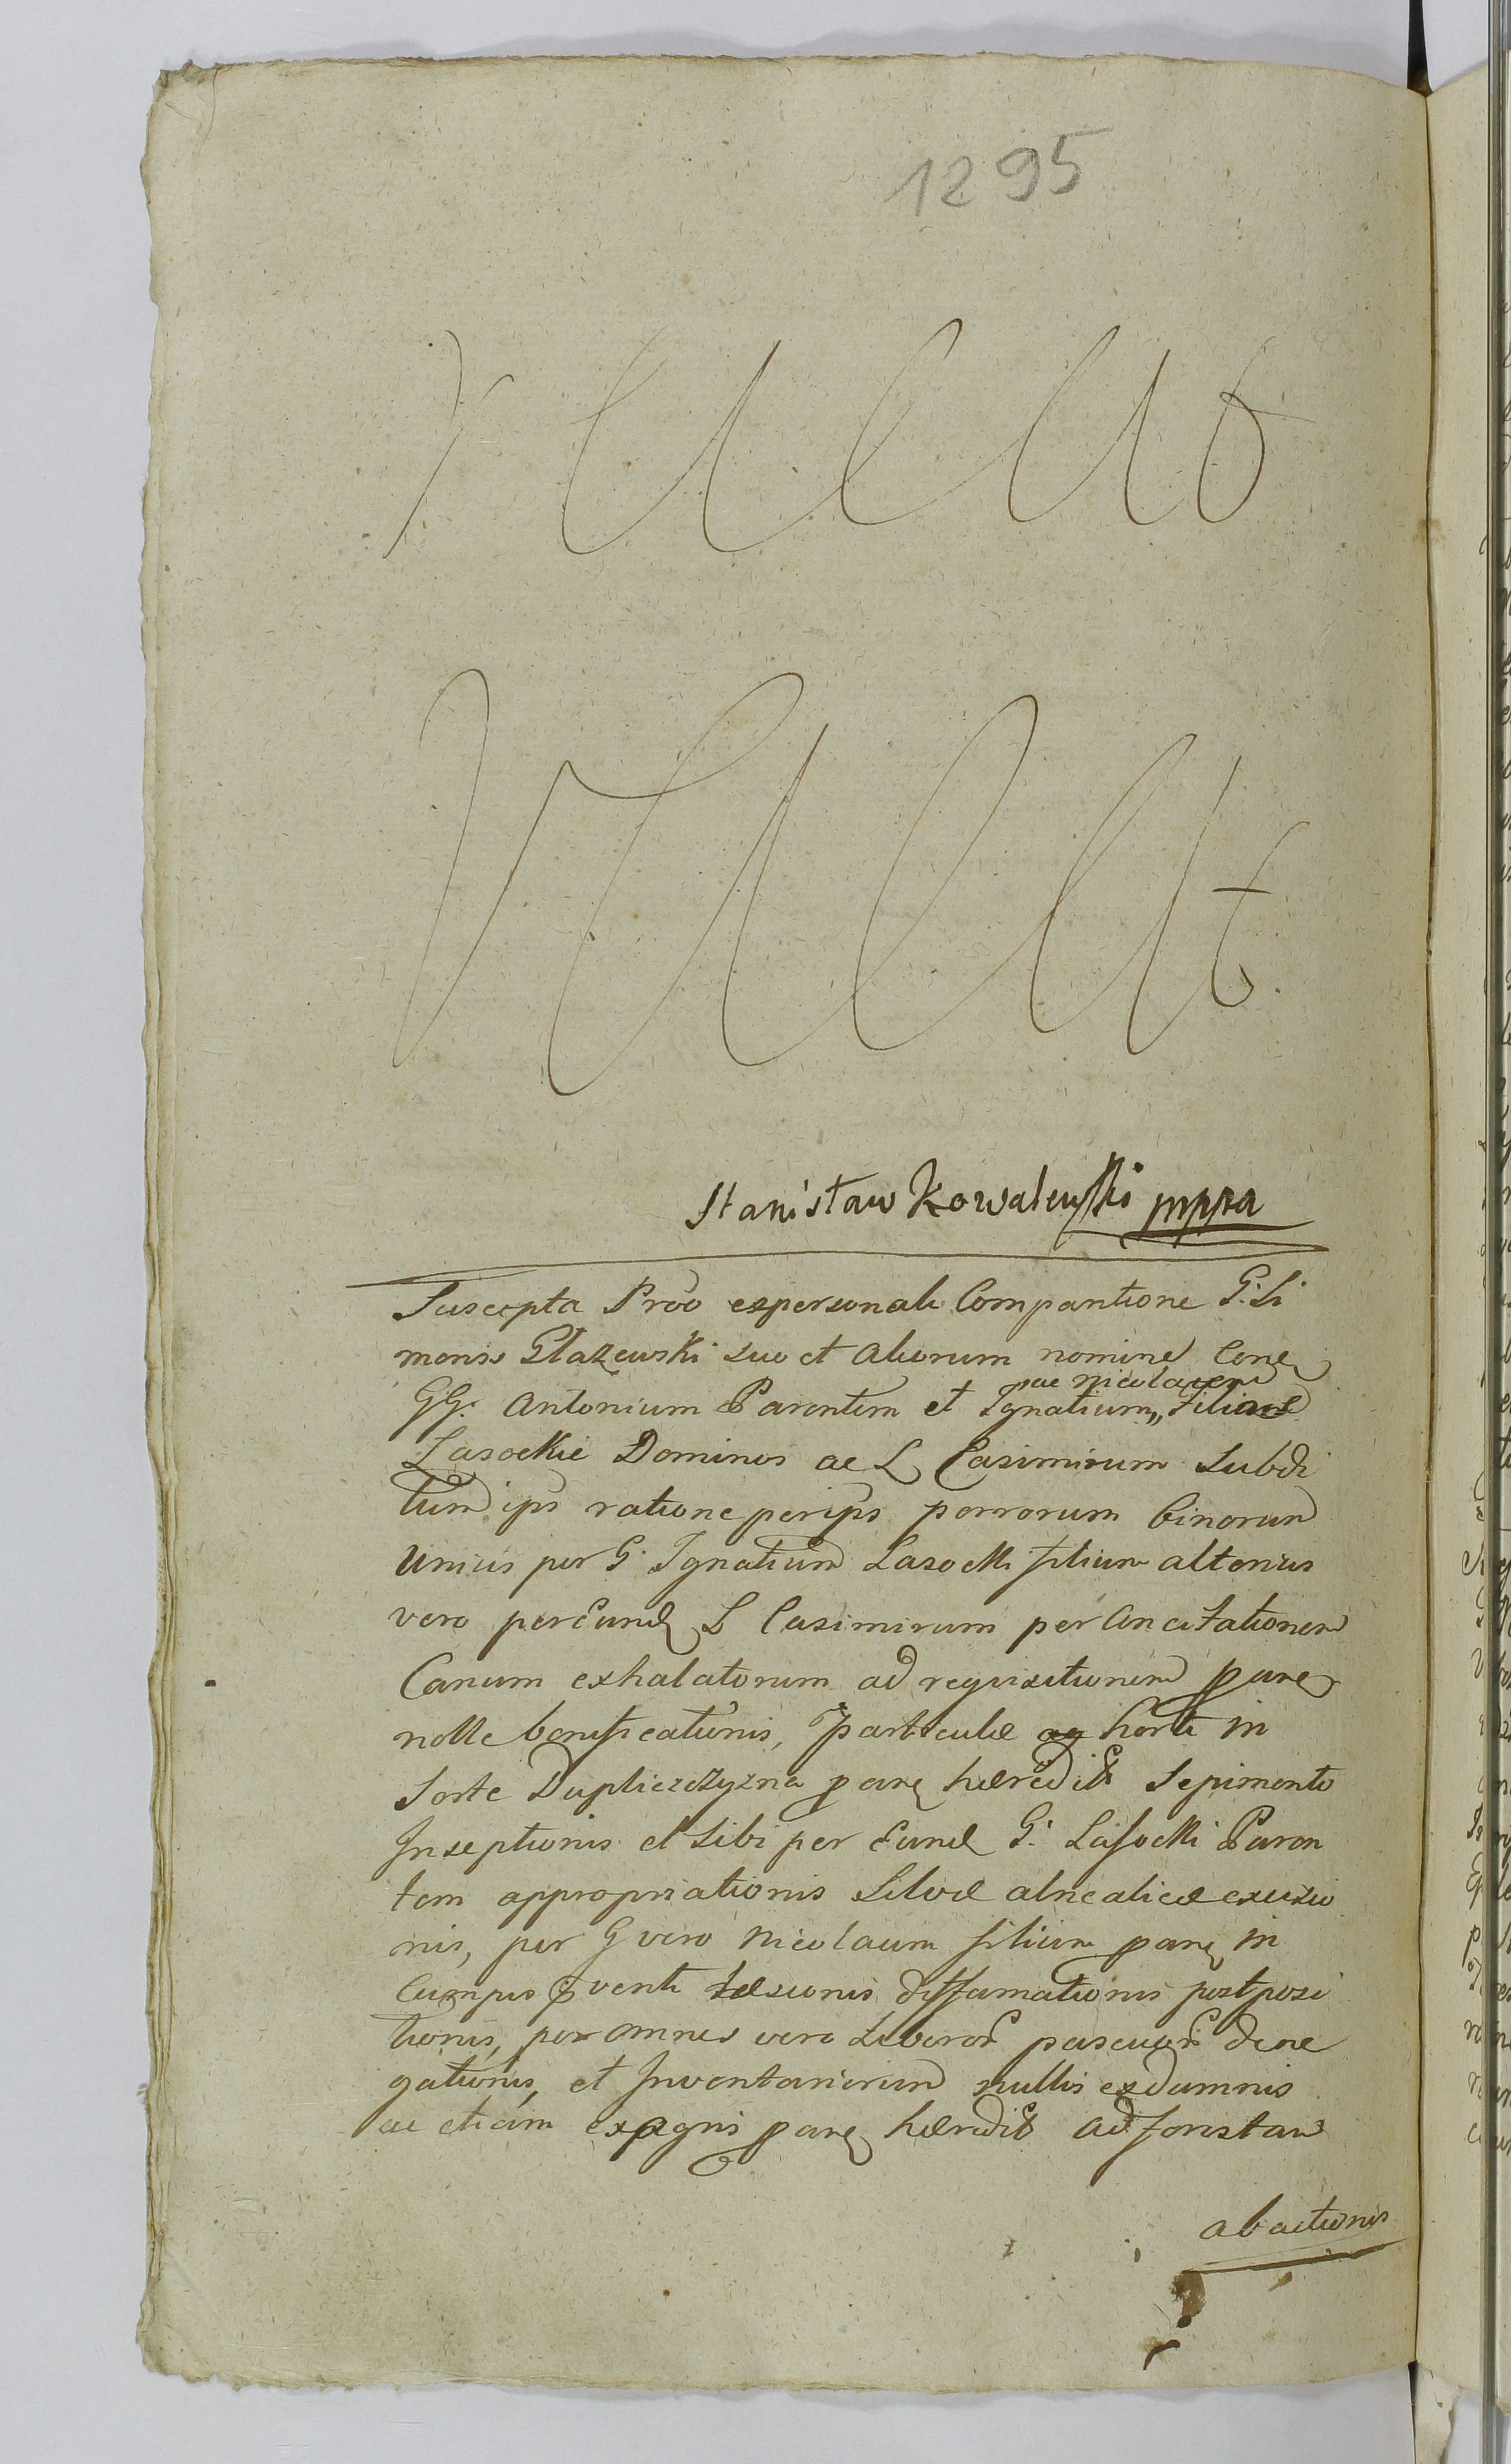 1295
Vacat
Vacat.
Stanisław Kowalewski mppa
Suscepta Pröo expersonali Comparitione G: Si
monis Głazewski suo et aliorum nomine Cone
GG: Antonium Parentem et Ignatium,, Filios
ac Nicolaum
Lasockie Dominos ac L Casimirum Subdi
tum ips ratione perips porrorum binorum
unius per G: Ignatium Lasocki filium alterius
vero per Eund L Casimirum per Concitationem
Canum exhalatorum ad requisitionem pane
nolle bonificationis, Particulæ horti in
Sorte Dupliczczyzna pane hæredit Sepimento
Inseptionis et Sibi per Eund G: Lasocki Paren
tem appropriationis Silvæ alnealicæ excisio
nis, per G vero Nicolaum filium pane in
Campis venti læsionis diffamationis postposi
tionis, per omnes vero Liberor pascuor dene
gationis, et Inventariorum nullis exdamnis
ac etiam exagris pane hæredit ad foristan
abactionis